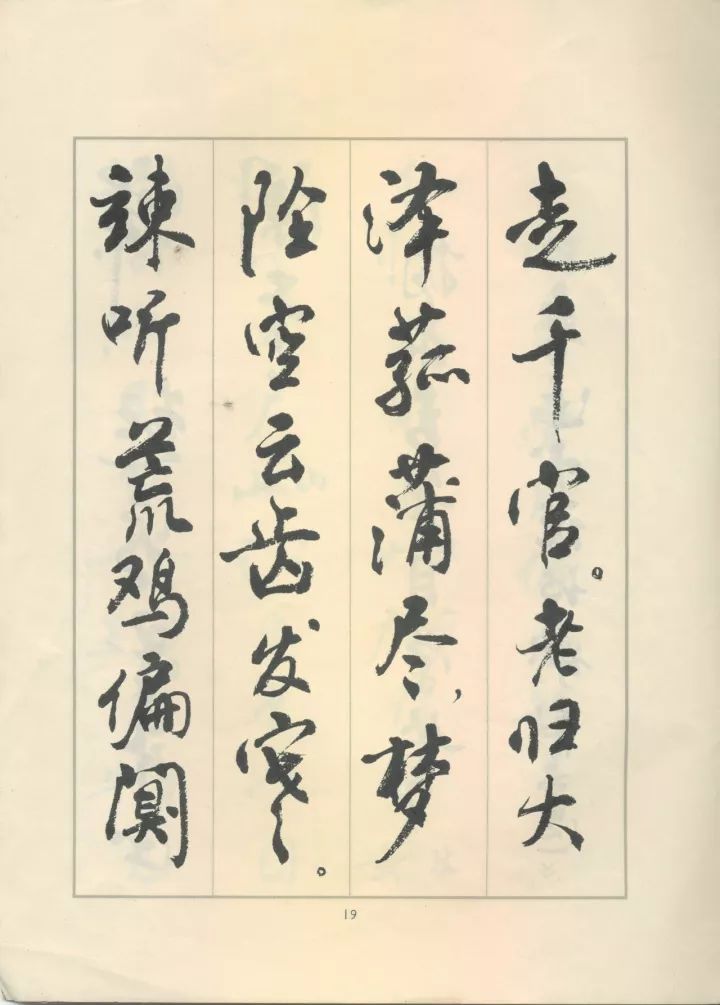 走千官。老归大
泽菰蒲尽,梦
坠空云齿发寒。
竦听荒鸡偏阒
19